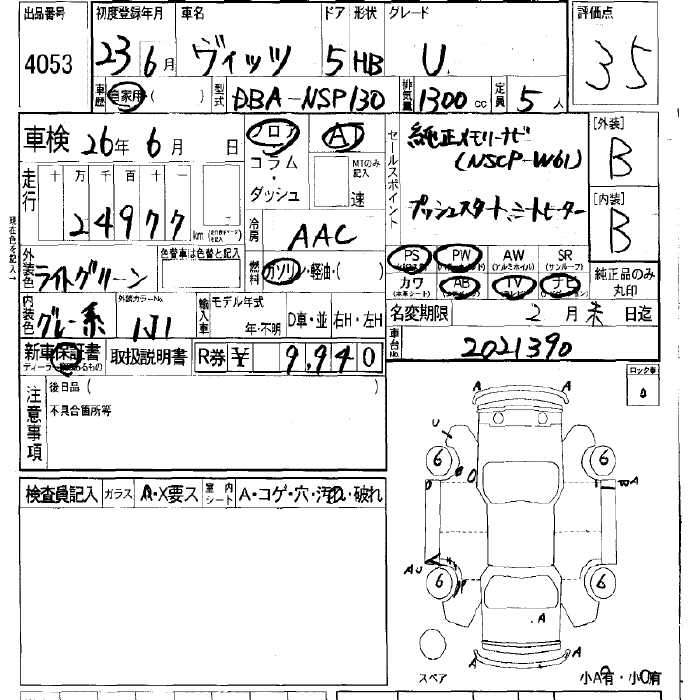 出品番号 初度登録年月 車名 ドア 形状 グレード 評価点
4053 23年6月 ヴィッツ 5 HB U 35
車歴 自家用・( ) 型式 DBA-NSP130 排気量 1300cc 定員 5人
車検 26年 6月 日 フロア AT セールスポイント 純正メモリーナビ [外装]
コラム・ MTのみ記入 (NSCP-W61) B
走行 十万千百十一 ダッシュ 速
24977 km プッシュスタート、シートヒーター [内装]
冷房 AAC B
外装色 色替車は色替と記入 PS PW AW SR
ライトグリーン 燃料 ガソリン・軽油・( ) (アルミホイル) (サンルーフ) 純正品のみ
カワ AB TV ナビ 丸印
(本革シート)
内装色 外装カラーNo. 輸入車 モデル年式 名変期限 2月末日迄
グレー系 1J1 年・不明 D車・並 右H・左H
新車保証書 取扱説明書 R券 ¥ 9,940 車台No. 2021390
現在色を記入
注意事項 後日品( ) ロック車
不具合箇所等 0
検査員記入 ガラス A・X要ス 室内シート A・コゲ・穴・汚れ・破れ
A A
U
6 6
A
AU
6 6
A
A A
スペア 小A有・小O有